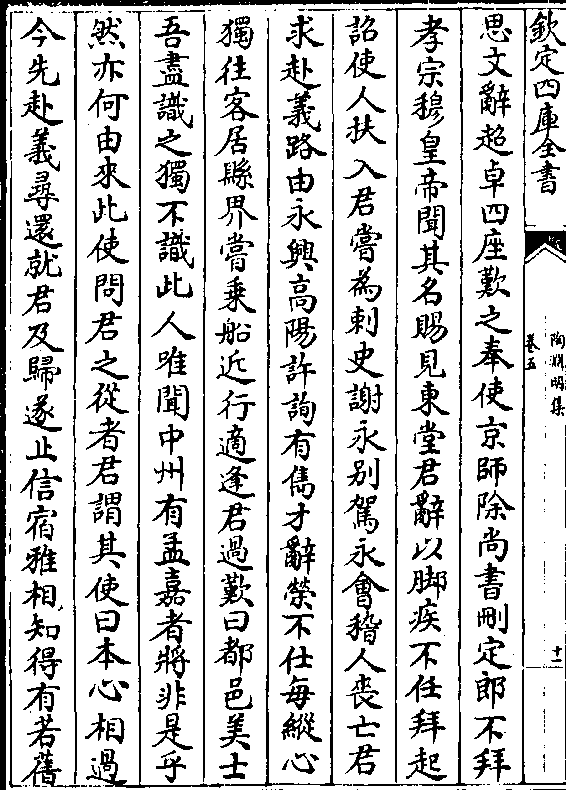 欽定四庫全書
陶淵明集
卷五
十一
思文辭超卓四座歎之奉使京師除尚書刪定郎不拜
孝宗穆皇帝聞其名賜見東堂君辭以脚疾不任拜起
詔使人扶入君嘗為刺史謝永别駕永會稽人喪亡君
求赴義路由永興高陽許詢有雋才辭榮不仕每縱心
獨往客居縣界嘗乗船近行適逢君過歎曰都邑美士
吾盡識之獨不識此人唯聞中州有孟嘉者將非是乎
然亦何由來此使問君之從者君謂其使曰本心相過
今先赴義尋還就君及歸遂止信宿雅相知得有若舊